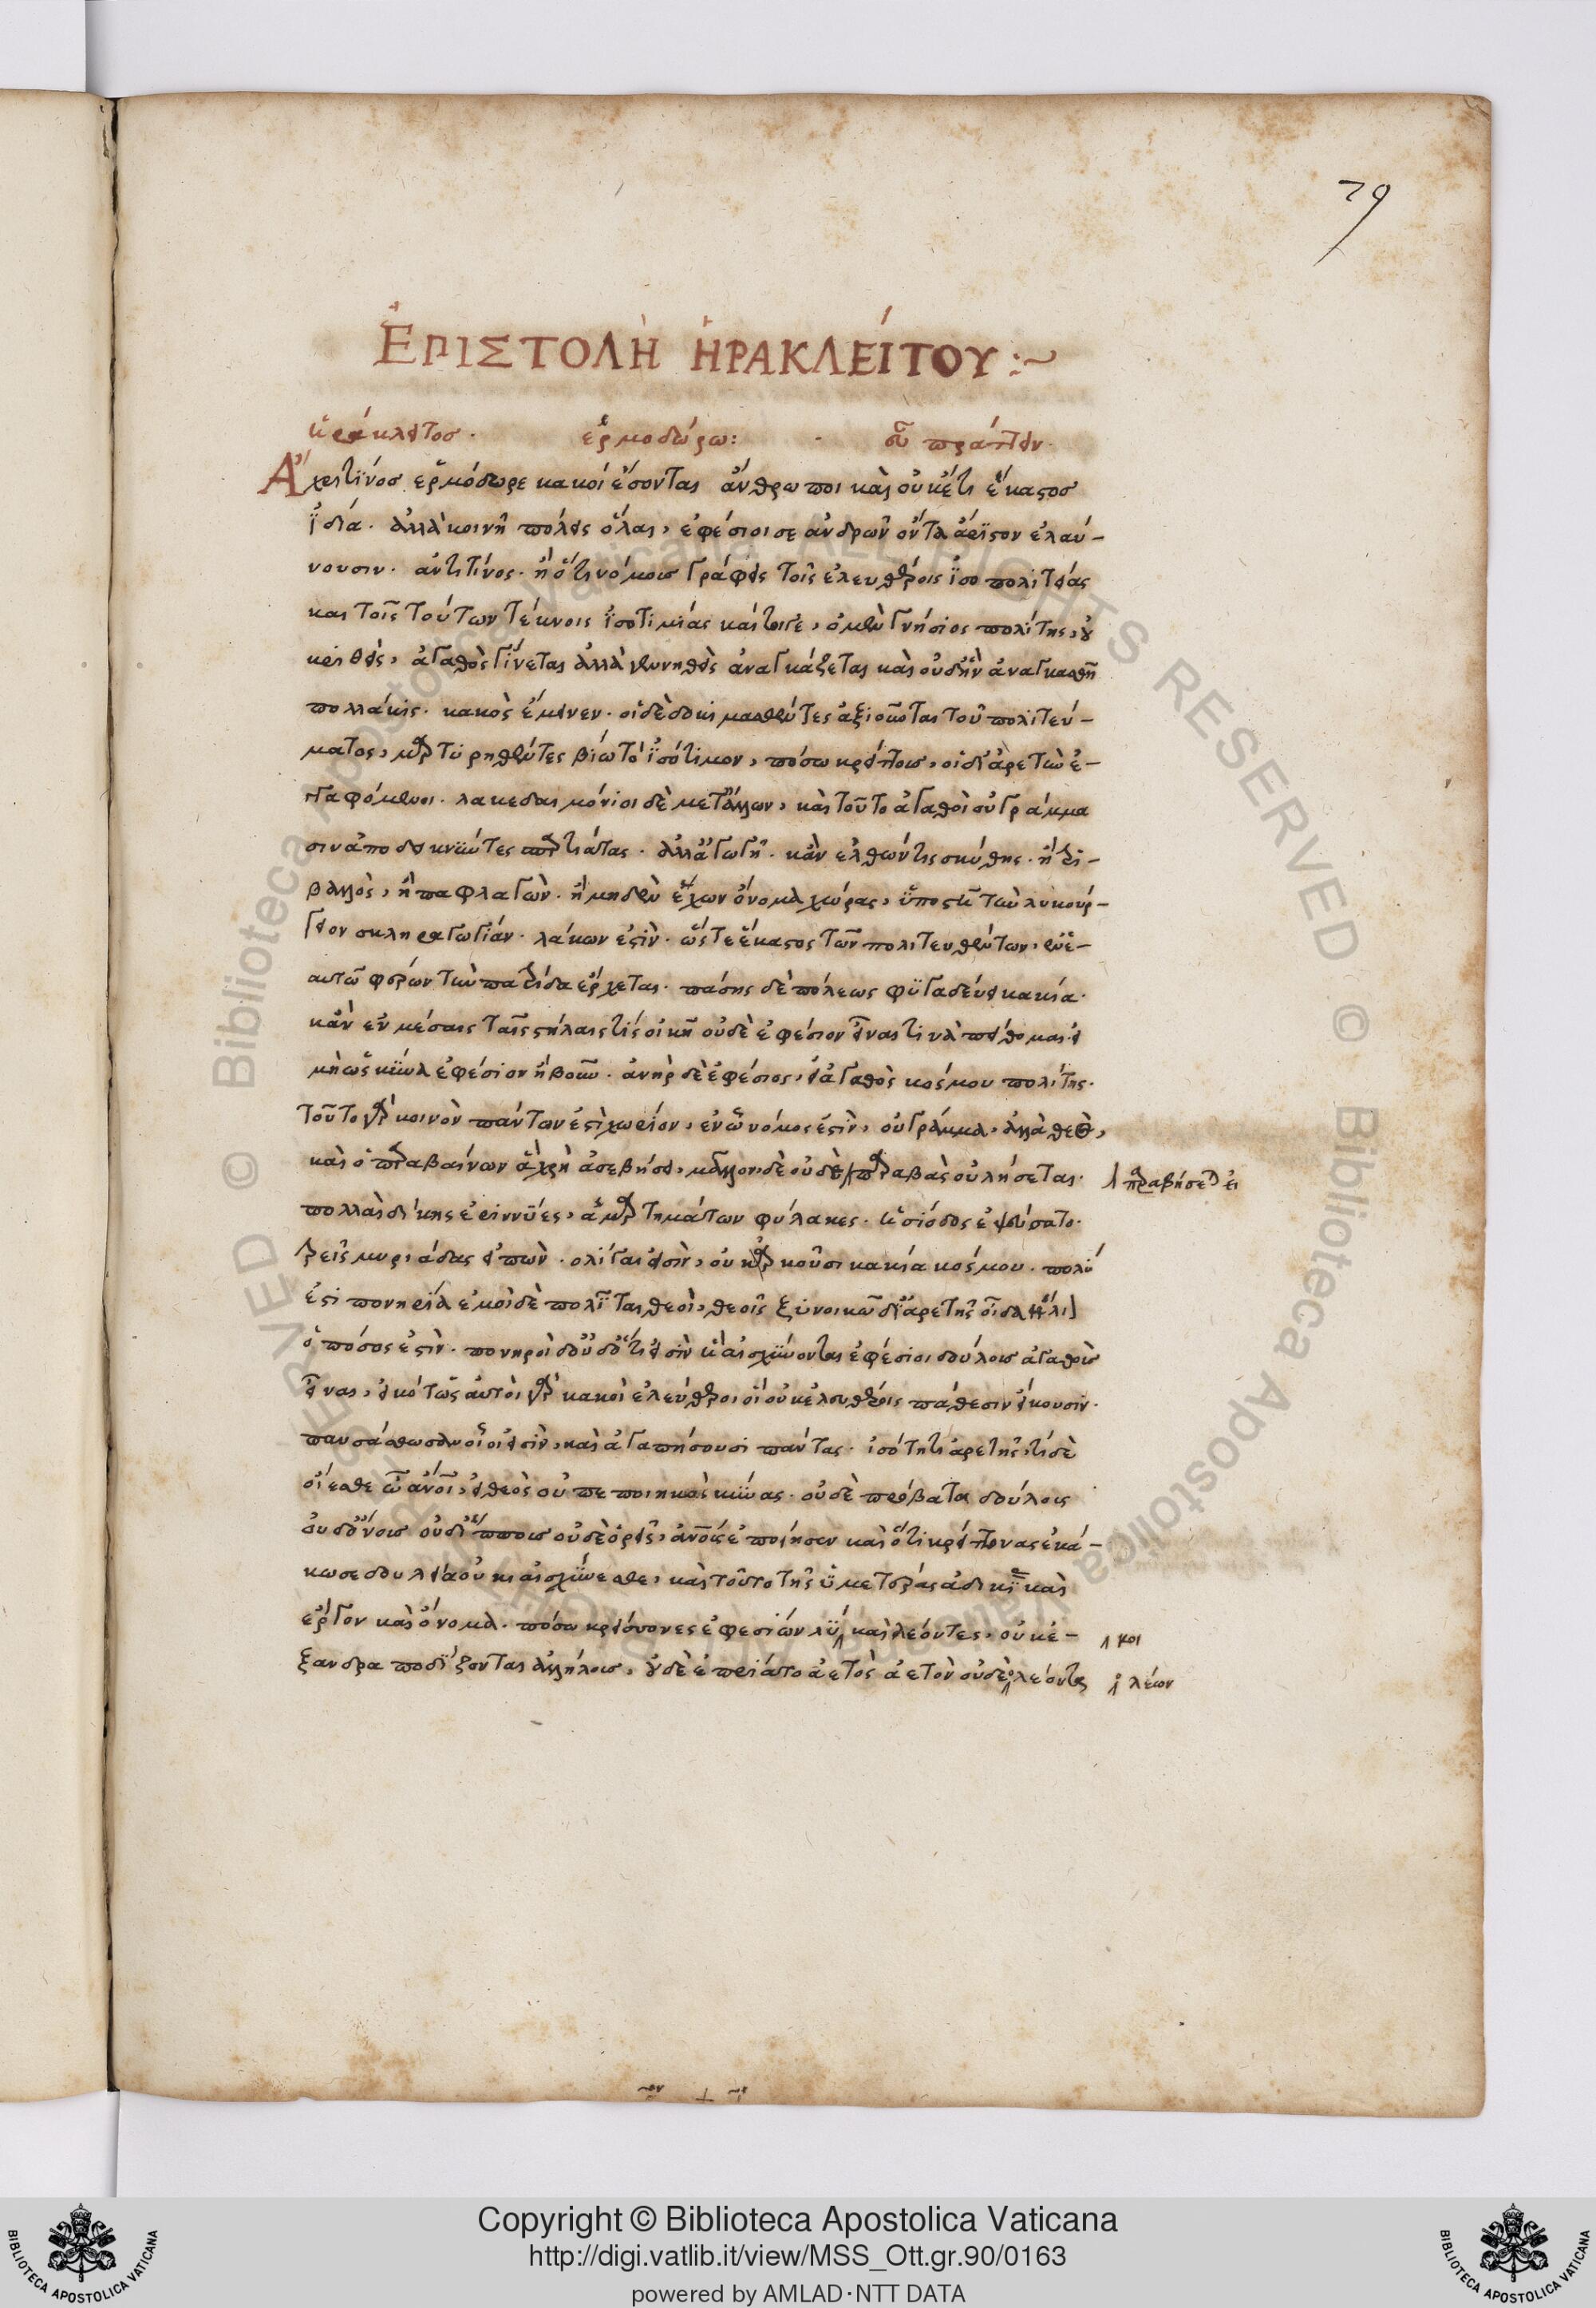 79
ἘΠΙΣΤΟΛῊ ἩΡΑΚΛΕΊΤΟΥ :~
ἡράκλειτοσ · ἑρμοδώρω: · εὖ πράττειν·
Ἄχρι τίνοσ ἑρμόδωρε κακοί ἔσονται ἄνθρωποι καὶ οὐκέτι ἕκαστοσ
ἰδία · ἀλλὰ κοινῆ πόλεις ὅλαι, ἐφέσιοι σε ἀνδρῶν ὄντα ἄριστον ἐλαύ-
νουσιν · ἀντιτίνος · ἢ ὅτι νόμοισ γράφεις τοῖς ἐλευθέροις ἰσοπολιτείας
και τοῖς τούτων τέκνοις ἰσοτιμίας καίτοιγε, ὁ μὲν γνήσιος πολίτης, οὐ
κριθεὶς, ἀγαθὸς γίνεται ἀλλὰ γεννηθεὶς ἀναγκάζεται καὶ οὐδὴν ἀναγκασθῆ
πολλάκις · κακὸς ἔμεινεν · οἱ δὲ δοκιμασθέντες ἀξιοῦνται τοῦ πολιτεύ-
ματος, μαρτυρηθέντες βίω τὸ ἰσότιμον, πόσω κρείττοισ, οἱ δι' ἀρετὴν ἐ-
γγραφόμενοι · λακεδαιμόνιοι δὲ μετ' ἄλλων, καὶ τοῦτο ἀγαθοὶ οὐ γράμμα
σιν ἀποδεικνύντες σπαρτιάτας · ἀλλ' ἀγωγῆ · κἂν ἐλθών τις σκύθης · ἢ τρι-
βαλλὸς, ἢ παφλαγὼν · ἢ μηδὲν ἔχων ὄνομα χώρας, ὑποστῆ τὴν λυκούρ-
γειον σκληραγωγίαν · λάκων ἐστὶν · ὥστε ἕκαστος τῶν πολιτευθέντων, ἐν ἑ-
αυτῶ φέρων τὴν πατρίδα ἔρχεται · πάσης δὲ πόλεως φυγαδεύει κακία·
κἂν ἐν μέσαις ταῖς στήλαις τίς οἰκῆ οὐδὲ ἐφέσιον εἶναι τινὰ πείθομαι· εἰ
μὴ ὡς κύνα ἐφέσιον ἢ βοῦν · ἀνὴρ δὲ ἐφέσιος, εἰ ἀγαθὸς κόσμου πολίτης·
τοῦτο γὰρ κοινὸν πάντων ἐστὶ χωρίον, ἐν ὧ νόμος ἐστὶν, οὐ γράμμα, ἀλλὰ θεὸς,
καὶ ὁ παραβαίνων ἃ χρὴ ἀσεβήσει, μᾶλλον δὲ οὐδὲ παραβὰς οὐ λήσεται·
παραβήσεται εἰ
πολλαὶ δίκης ἐριννύες, ἁμαρτημάτων φύλακες · ἡσίοδος ἐψεύσατο·
τρεῖς μυριάδας εἰπὼν · ὀλίγαι εἰσὶν, οὐκ ἀρκοῦσι κακία κόσμου · πολύ
ἐστι πονηρία ἐμοὶ δὲ πολῖται θεοὶ, θεοῖς ξύνοικῶ δι' ἀρετῆς οἶδα ἥλιον
ὁπόσος ἐστὶν · πονηροὶ δ' οὐδ' ὅτι εἰσὶν ἢ αἰσχύνονται ἐφέσιοι δούλουσ ἀγαθοὺσ
εἶναι, εἰκότως αὐτοὶ γὰρ κακοὶ ἐλεύθεροι οἳ οὐκ ἐλευθέροις πάθεσιν εἴκουσιν·
παυσάσθωσαν οἷοι εἰσὶν, καὶ ἀγαπήσουσι πάντας · ἰσότητι ἀρετῆς, τί δὲ
οἴεσθε ὦ ἄνθρωποι, εἰ θεὸς οὐ πεποιηκὼς κύνας · οὐδὲ πρόβατα δούλους
οὐδ' ὄνοισ οὐδ' ἵπποισ οὐδὲ ὀρεῖς, ἀνθρώπους ἐποίησεν καὶ ὅτι κρείττονας ἐκά-
κωσε δουλεία οὐκ αἰσχύνεσθε, καὶ τοῦτο τῆς ὑμετέρας ἀδικίας καὶ
ἔργον καὶ ὄνομα · πόσω κρείσσονες ἐφεσίων λύ καὶ λέοντες, οὐκ ἐ-
κοι
ξανδραποδίζονται ἀλλήλουσ, οὐδὲ ἐπρίατο ἀετὸς ἀετὸν οὐδὲ λέοντος
λέων
Copyright © Biblioteca Apostolica Vaticana
http://digi.vatlib.it/view/MSS_Ott.gr.90/0163
powered by AMLAD·NTT DATA
BIBLIOTECA APOSTOLICA VATICANA
BIBLIOTECA APOSTOLICA VATICANA